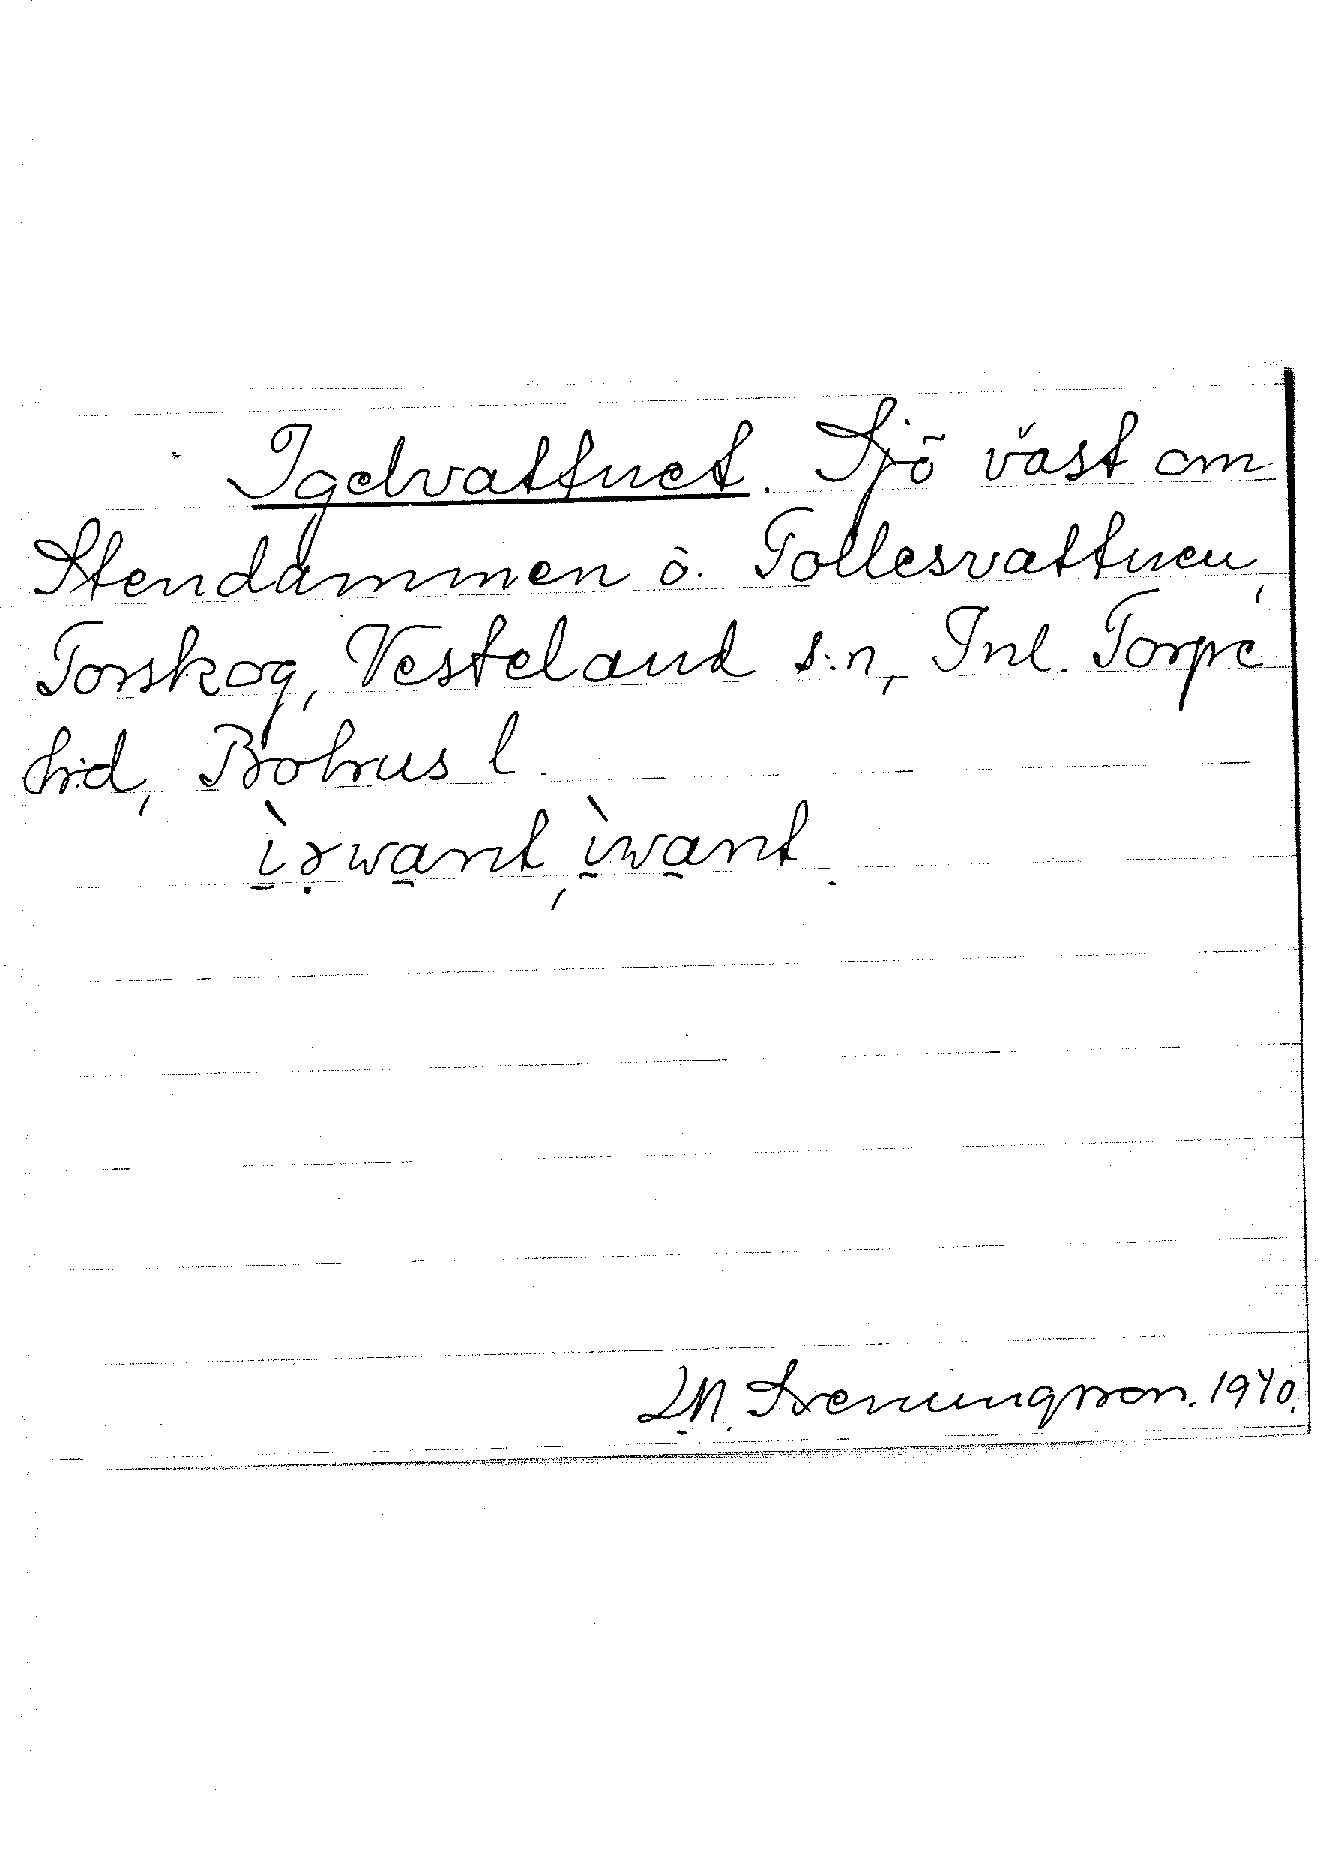 Igelvattnet. Sjö väst om
Stendammen o. Tollesvattnen,
Torskog, Vesteland s:n, Inl. Torpe
hrd, Bohus l.
ìəwant, ìwant.
M. Svenungsson. 1940.